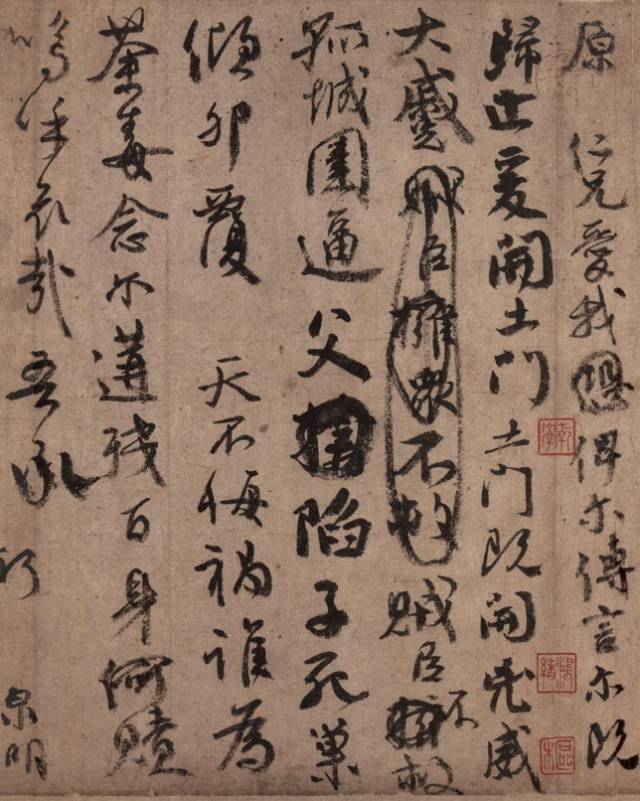 原仁兄愛我俾尒傳言尒既
歸止爰開土門土門既開凶威
大蹙賊臣擁衆不救賊臣不救
孤城圍逼父陷子死巢
傾卵覆天不悔禍誰為
荼毒念尒遘殘百身何贖
嗚乎哀哉吾承
泉明